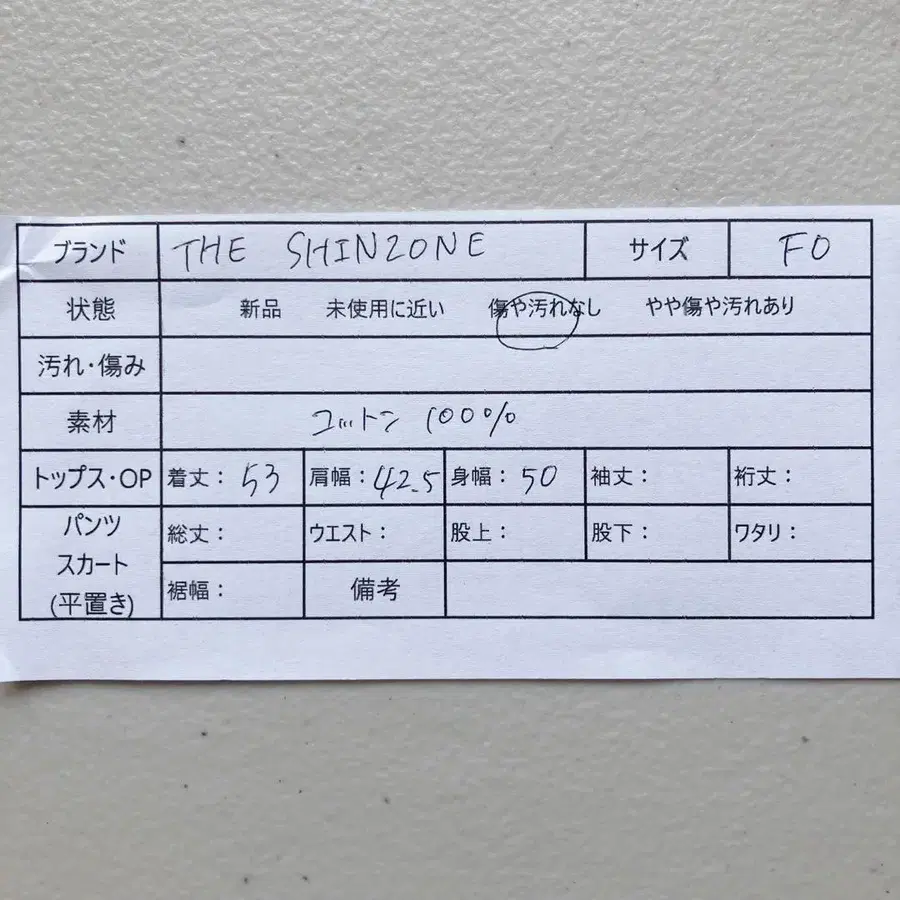 ブランド THE SHINZONE サイズ F0
状態 新品 未使用に近い 傷や汚れなし やや傷や汚れあり
汚れ・傷み
素材 コットン 100%
トップス・OP 着丈: 53 肩幅: 42.5 身幅: 50 袖丈: 裄丈:
パンツ
スカート
(平置き)
総丈: ウエスト: 股上: 股下: ワタリ:
裾幅: 備考